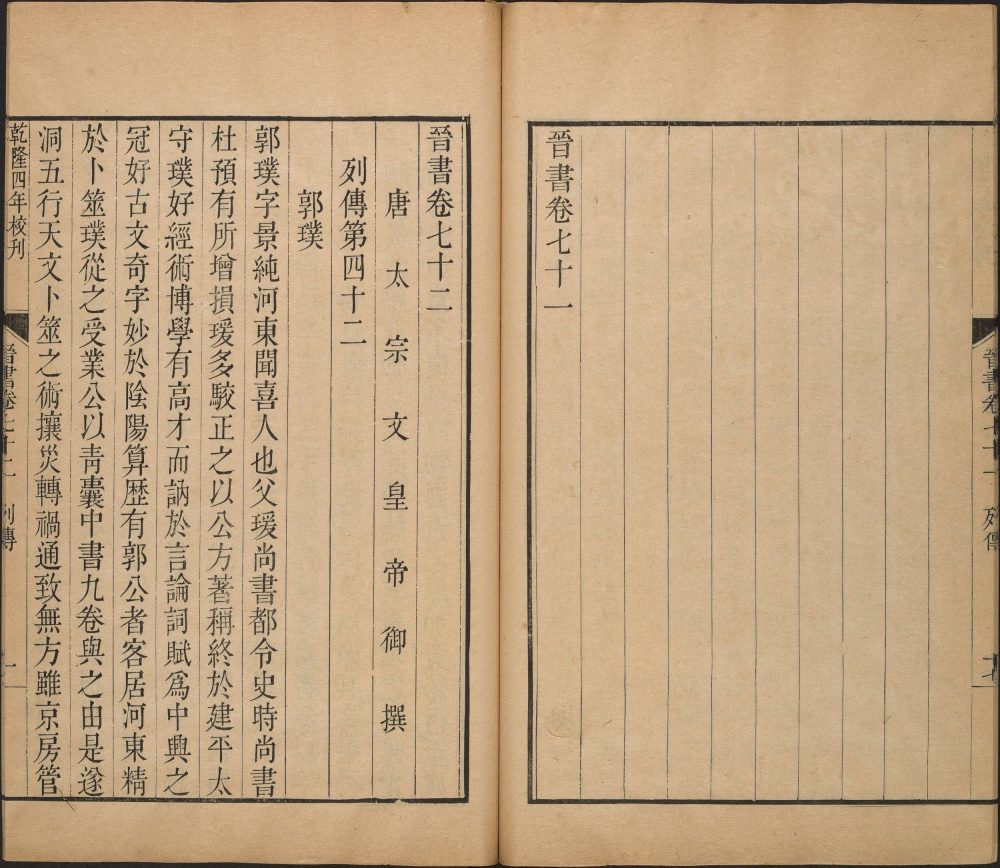 晉書卷七十一 列傳
十七
晉書卷七十一
晉書卷七十二
唐太宗文皇帝御撰
列傳第四十二
郭璞
郭璞字景純河東聞喜人也父瑗尚書都令史時尚書
杜預有所增損瑗多駮正之以公方著稱終於建平太
守璞好經術博學有高才而訥於言論詞賦爲中興之
冠好古文奇字妙於陰陽算歷有郭公者客居河東精
於卜筮璞從之受業公以靑囊中書九卷與之由是遂
洞五行天文卜筮之術攘災轉禍通致無方雖京房管
乾隆四年校刊
晉書卷七十二 列傳
一